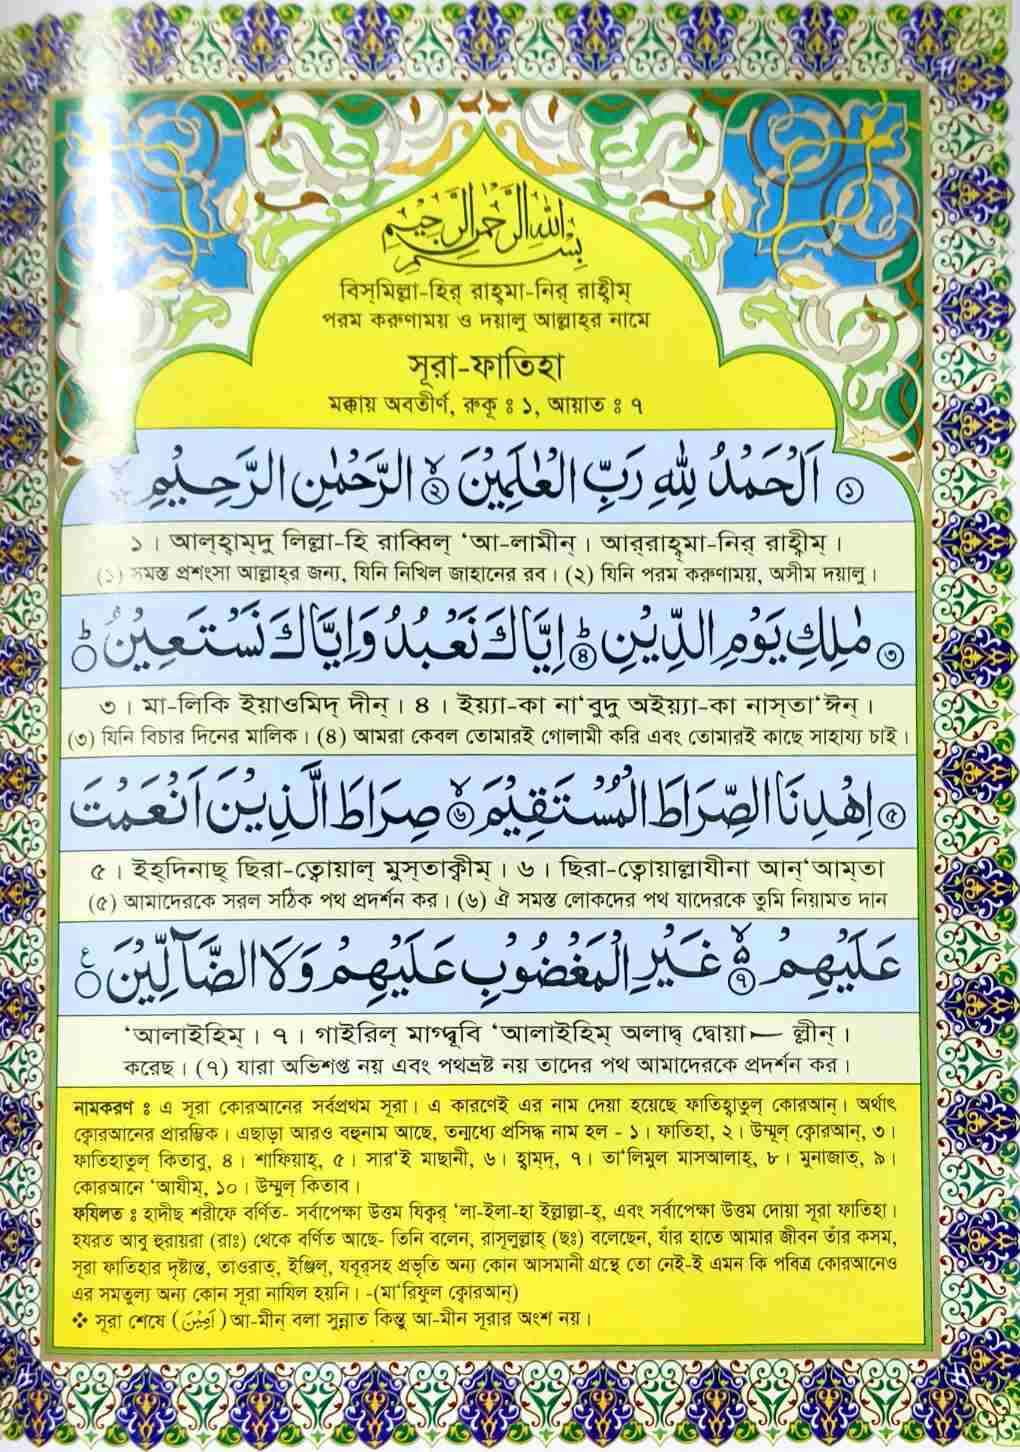 بِسْمِ اللهِ الرَّحْمٰنِ الرَّحِيْمِ
বিস্‌মিল্লা-হির্ রাহ্‌মা-নির্ রাহীম্
পরম করুণাময় ও দয়ালু আল্লাহ্‌র নামে
সূরা-ফাতিহা
মক্কায় অবতীর্ণ, রুকূ ঃ ১, আয়াত ঃ ৭
১ اَلْحَمْدُ لِلّٰهِ رَبِّ الْعٰلَمِيْنَ ২ الرَّحْمٰنِ الرَّحِيْمِ
১। আল্‌হাম্‌দু লিল্লা-হি রাব্বিল্ ‘আ-লামীন্। আর্‌রাহ্‌মা-নির্ রাহীম্।
(১) সমস্ত প্রশংসা আল্লাহ্‌র জন্য, যিনি নিখিল জাহানের রব। (২) যিনি পরম করুণাময়, অসীম দয়ালু।
৩ مٰلِكِ يَوْمِ الدِّيْنِ ط ৪ اِيَّاكَ نَعْبُدُ وَاِيَّاكَ نَسْتَعِيْنُ ط
৩। মা-লিকি ইয়াওমিদ্ দীন্। ৪। ইয়্যা-কা না‘বুদু অইয়্যা-কা নাস্‌তা‘ঈন্।
(৩) যিনি বিচার দিনের মালিক। (৪) আমরা কেবল তোমারই গোলামী করি এবং তোমারই কাছে সাহায্য চাই।
৫ اِهْدِنَا الصِّرَاطَ الْمُسْتَقِيْمَ ৬ صِرَاطَ الَّذِيْنَ اَنْعَمْتَ
৫। ইহ্‌দিনাছ্ ছিরা-ত্বোয়াল্ মুস্‌তাক্বীম্। ৬। ছিরা-ত্বোয়াল্লাযীনা আন্‘আম্‌তা
(৫) আমাদেরকে সরল সঠিক পথ প্রদর্শন কর। (৬) ঐ সমস্ত লোকদের পথ যাদেরকে তুমি নিয়ামত দান
عَلَيْهِمْ ৭ غَيْرِ الْمَغْضُوْبِ عَلَيْهِمْ وَلَا الضَّآلِّيْنَ ع
‘আলাইহিম্। ৭। গাইরিল্ মাগ্‌দ্বূবি ‘আলাইহিম্ অলাদ্ব দ্বোয়া — ল্লীন্।
করেছ। (৭) যারা অভিশপ্ত নয় এবং পথভ্রষ্ট নয় তাদের পথ আমাদেরকে প্রদর্শন কর।
নামকরণ ঃ এ সূরা কোরআনের সর্বপ্রথম সূরা। এ কারণেই এর নাম দেয়া হয়েছে ফাতিহাতুল্ কোরআন্। অর্থাৎ
ক্বোরআনের প্রারম্ভিক। এছাড়া আরও বহুনাম আছে, তন্মধ্যে প্রসিদ্ধ নাম হল - ১। ফাতিহা, ২। উম্মূল্ ক্বোরআন্, ৩।
ফাতিহাতুল্ কিতাবু, ৪। শাফিয়াহ্, ৫। সার‘ই মাছানী, ৬। হাম্‌দ্, ৭। তা‘লিমুল মাসআলাহ্, ৮। মুনাজাত্, ৯।
কোরআনে ‘আযীম্, ১০। উম্মুল্ কিতাব।
ফযিলত ঃ হাদীছ শরীফে বর্ণিত- সর্বাপেক্ষা উত্তম যিক্বর্ ‘লা-ইলা-হা ইল্লাল্লা-হ্, এবং সর্বাপেক্ষা উত্তম দোয়া সূরা ফাতিহা।
হযরত আবু হুরায়রা (রাঃ) থেকে বর্ণিত আছে- তিনি বলেন, রাসূলুল্লাহ্ (ছঃ) বলেছেন, যাঁর হাতে আমার জীবন তাঁর কসম,
সূরা ফাতিহার দৃষ্টান্ত, তাওরাত্, ইঞ্জিল্, যবূরসহ প্রভৃতি অন্য কোন আসমানী গ্রন্থে তো নেই-ই এমন কি পবিত্র কোরআনেও
এর সমতুল্য অন্য কোন সূরা নাযিল হয়নি। -(মা‘রিফুল ক্বোরআন্)
❖ সূরা শেষে (اٰمِيْنَ) আ-মীন্ বলা সুন্নাত কিন্তু আ-মীন সূরার অংশ নয়।